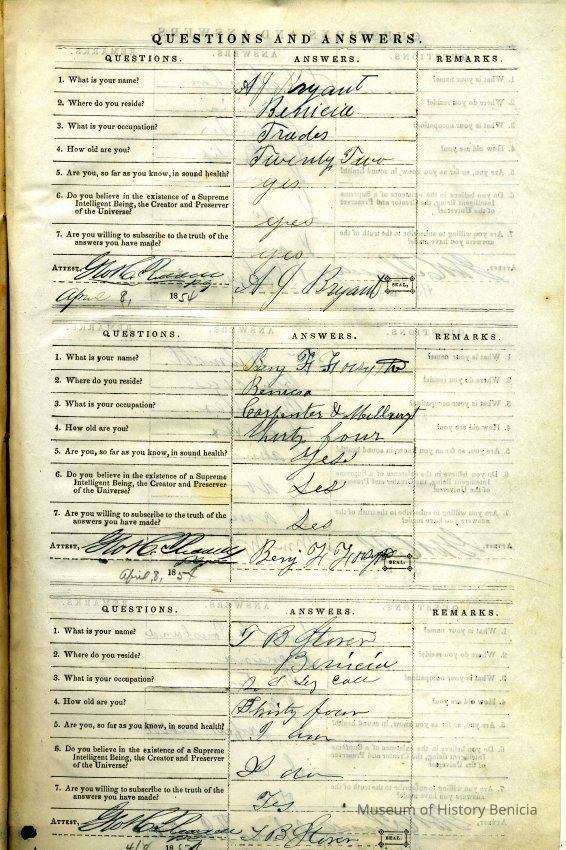 QUESTIONS AND ANSWERS.
QUESTIONS. ANSWERS. REMARKS.
1. What is your name? A J Bryant
2. Where do you reside? Benicia
3. What is your occupation? Trader
4. How old are you? Twenty Two
5. Are you, so far as you know, in sound health? yes
6. Do you believe in the existence of a Supreme
Intelligent Being, the Creator and Preserver
of the Universe? yes
7. Are you willing to subscribe to the truth of the
answers you have made? yes
ATTEST, Geo C. A J Bryant SEAL.
April 8, 1854
QUESTIONS. ANSWERS. REMARKS.
1. What is your name? Benj F
2. Where do you reside? Benicia
3. What is your occupation? Carpenter &
4. How old are you? Thirty four
5. Are you, so far as you know, in sound health? Yes
6. Do you believe in the existence of a Supreme
Intelligent Being, the Creator and Preserver
of the Universe? Yes
7. Are you willing to subscribe to the truth of the
answers you have made? Yes
ATTEST, Geo C. Benj F SEAL.
April 8, 1854
QUESTIONS. ANSWERS. REMARKS.
1. What is your name? B
2. Where do you reside? Benicia
3. What is your occupation?
4. How old are you? Thirty four
5. Are you, so far as you know, in sound health? I am
6. Do you believe in the existence of a Supreme
Intelligent Being, the Creator and Preserver
of the Universe? I do
7. Are you willing to subscribe to the truth of the
answers you have made? Yes
Museum of History Benicia
ATTEST, Geo C. B SEAL.
4/8 1854